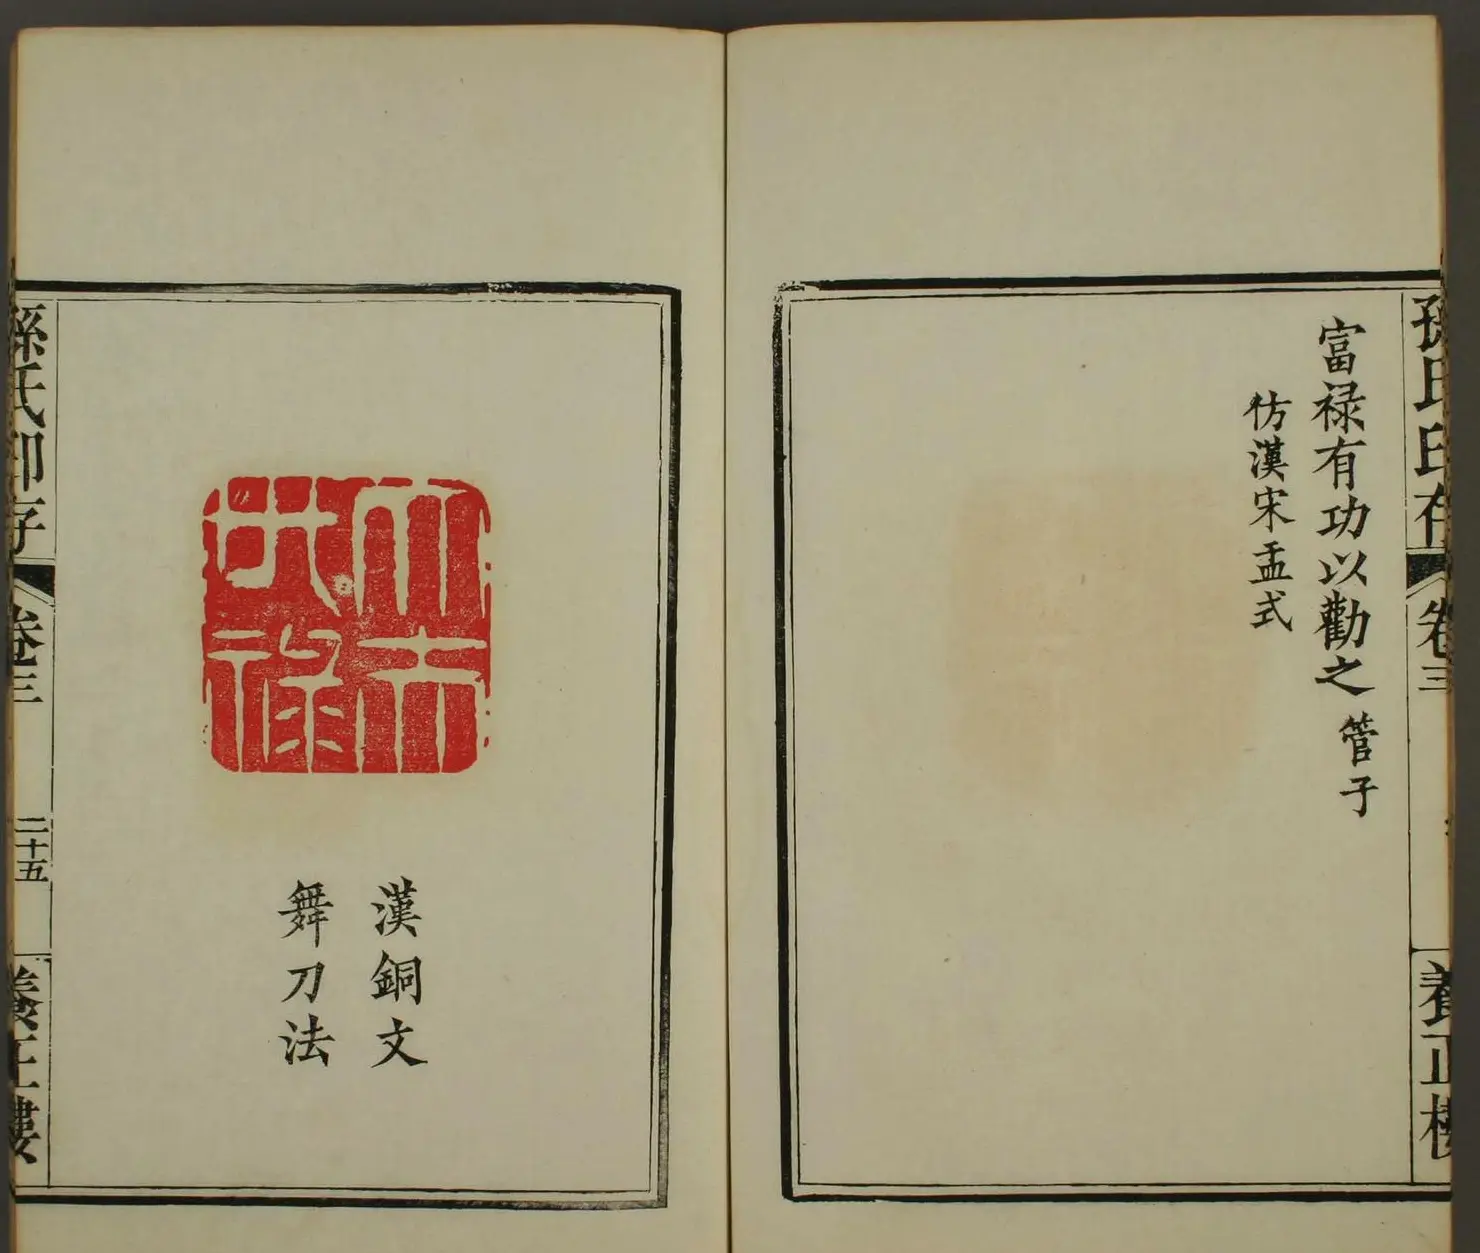 孫氏印存
卷三
養正樓
富禄有功以勸之 管子
仿漢宋盂式
漢銅文
舞刀法
孫氏印存
卷三
二十五
養正樓